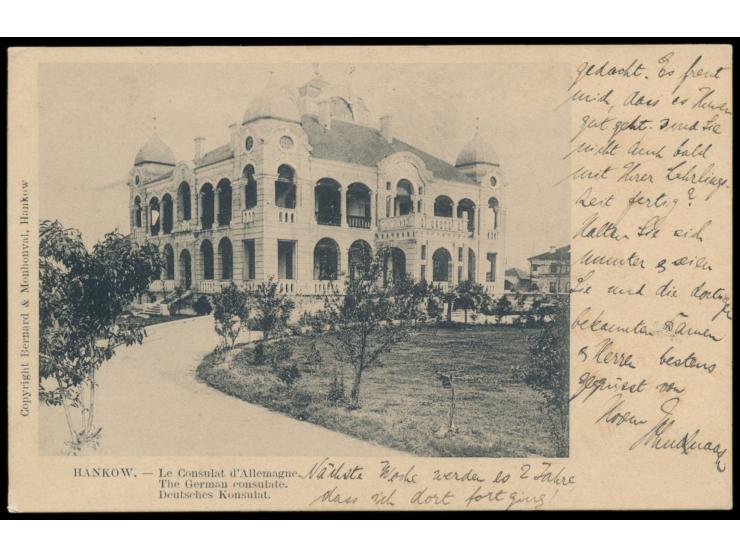 gedacht. Es freut
mich, dass es Ihnen
gut geht. Sind Sie
nicht auch bald
mit Ihrer Lehrlings-
zeit fertig?
Halten Sie sich
munter & seien
Sie und die dortigen
bekannten Damen
& Herren bestens
gegrüsst von
Ihrem
Copyright Bernard & Monbonval, Hankow
HANKOW. — Le Consulat d'Allemagne.
The German consulate.
Deutsches Konsulat.
Nächste Woche werden es 2 Jahre
dass ich dort fortging!